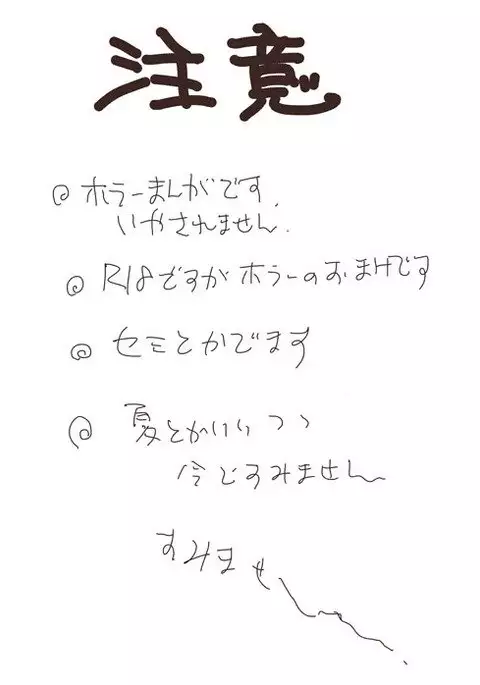 注意
◎ホラーまんがです。
いやされません。
◎R18ですがホラーのおまけです
◎セミとかでます
◎夏とかいいつつ
今ですみません
すみません